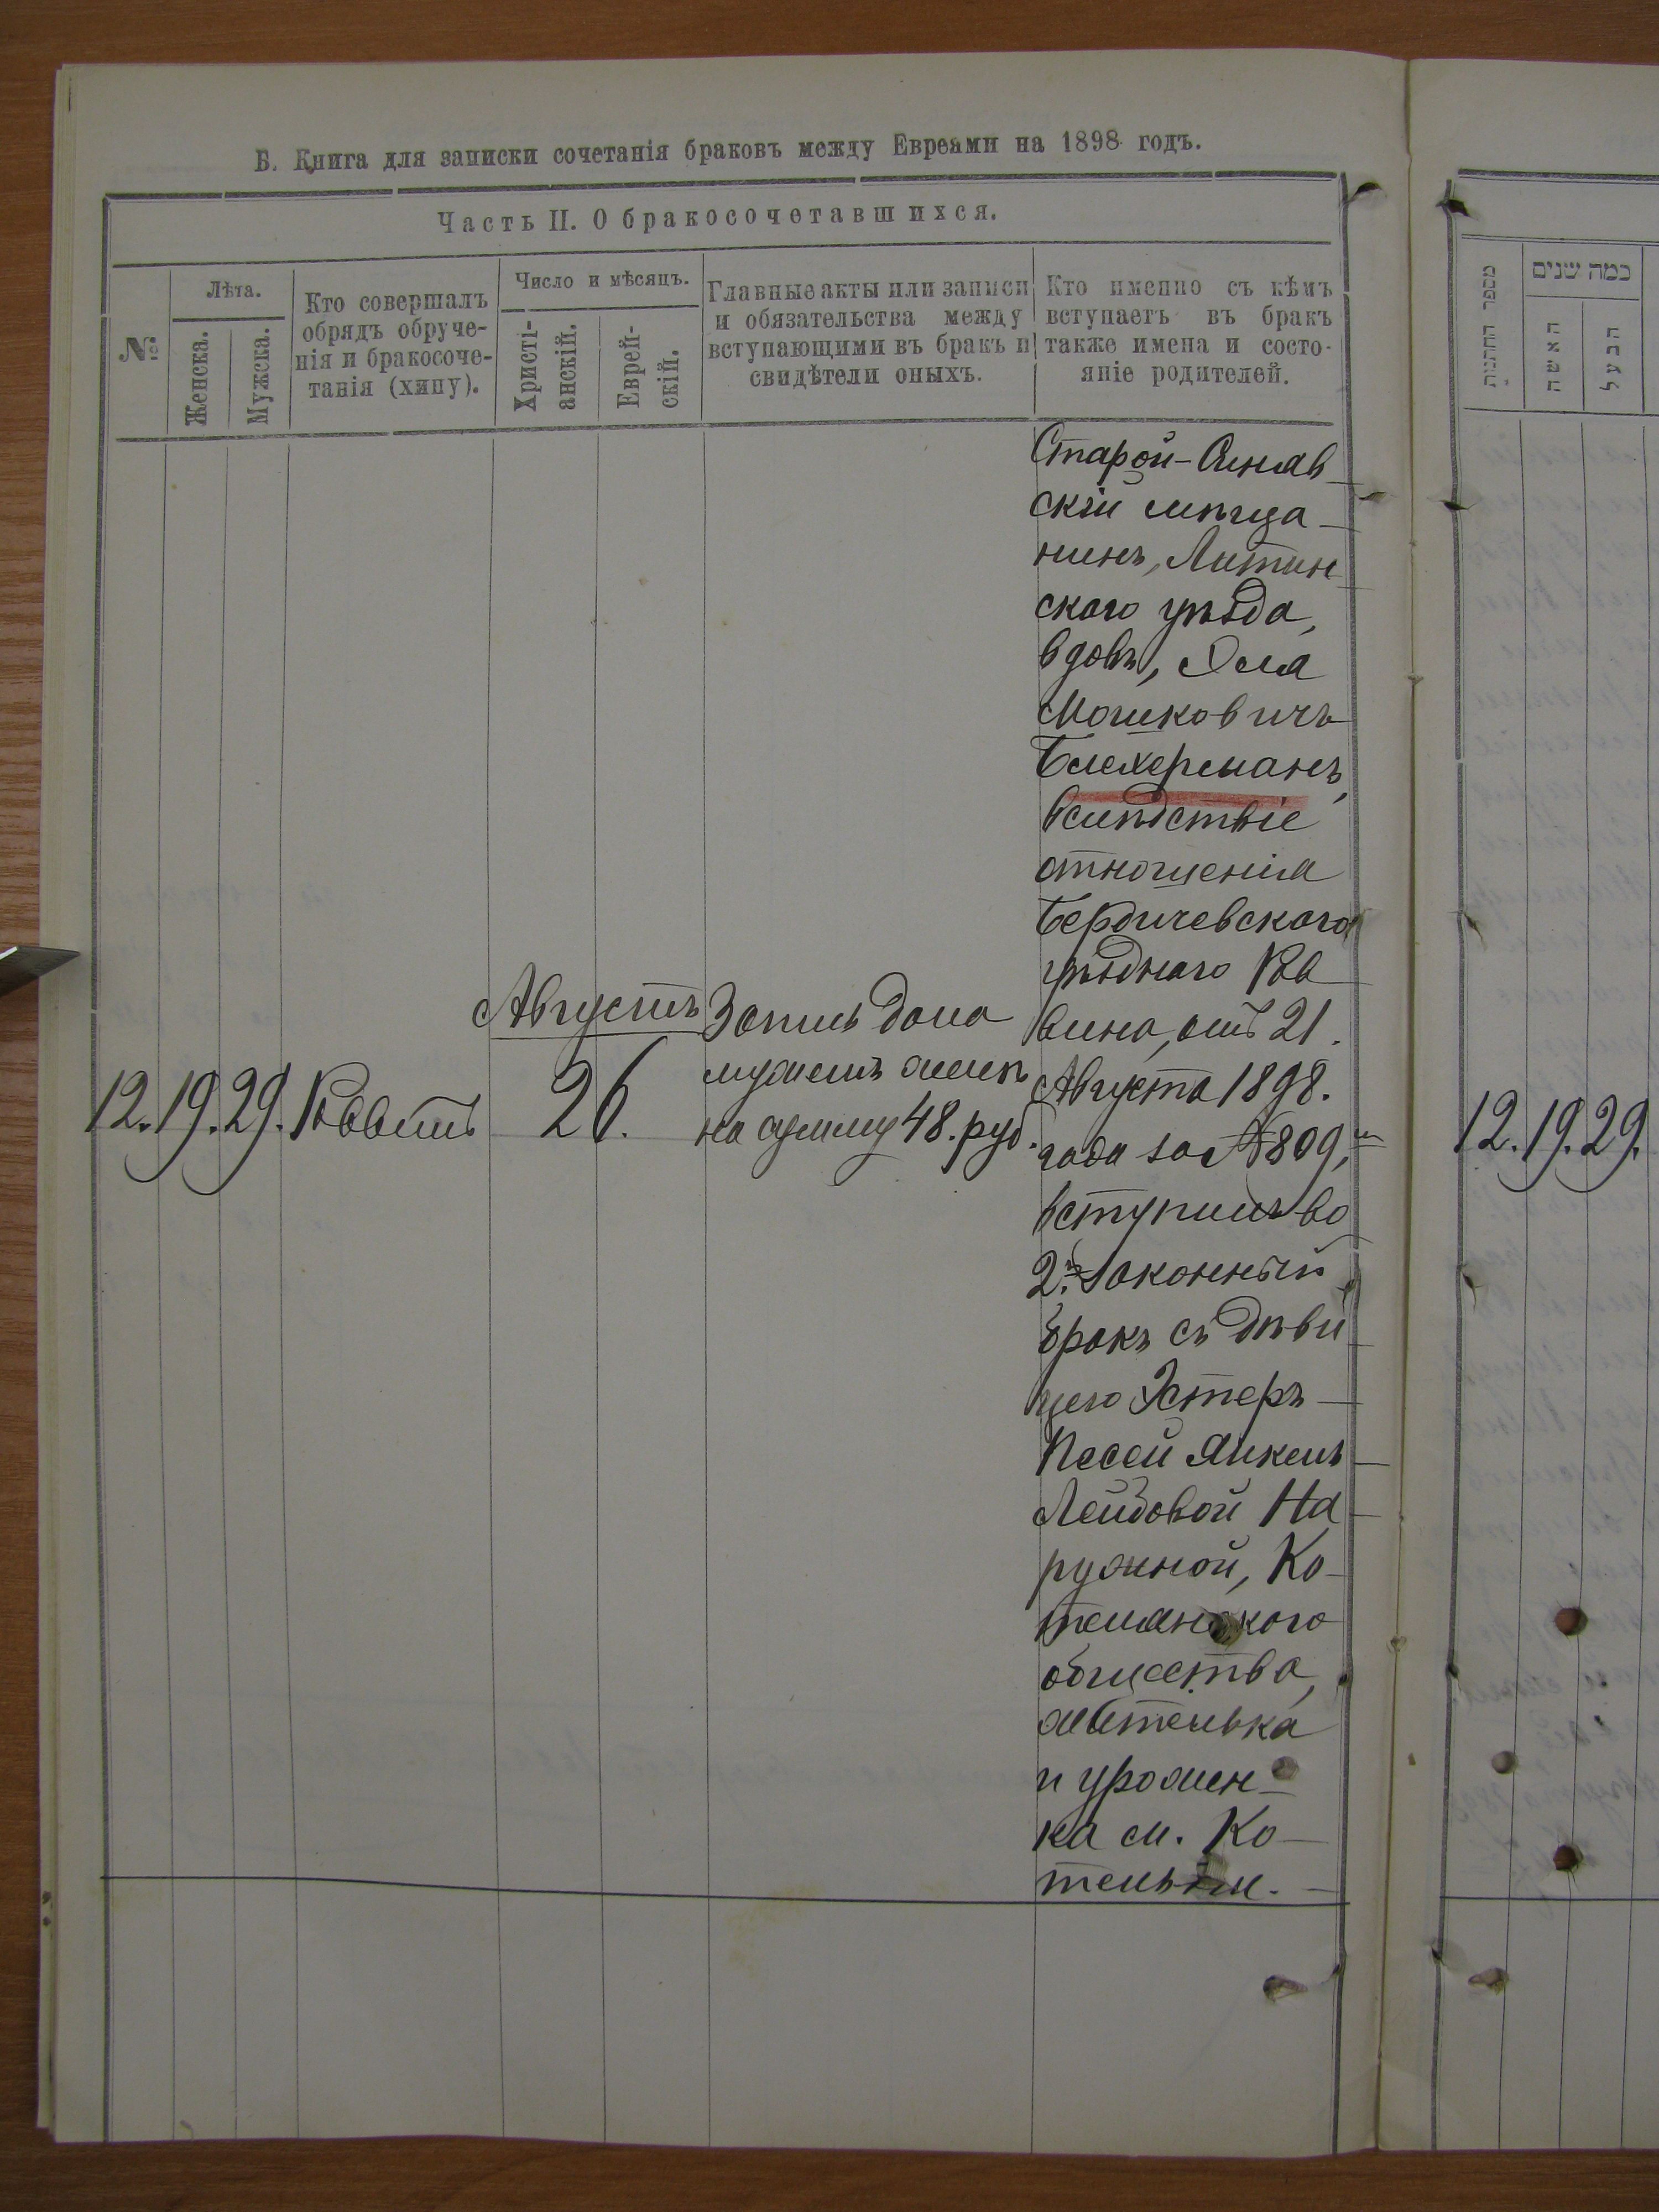 Б. Книга для записки сочетанія браковъ между Евреами на 1898 годъ.
Часть II. О бракосочетавшихся.
№
Лѣта.
Женска.
Мужска.
Кто совершалъ
обрядъ обруче-
нія и бракосоче-
танія (хипу).
Число и мѣсяцъ.
Христі-
анскій.
Еврей-
скій.
Главные акты или записи
и обязательства между
вступающими въ бракъ и
свидѣтели оныхъ.
Кто именно съ кѣмъ
вступаетъ въ бракъ
также имена и состо-
яніе родителей.
12. 19. 29. Раввинъ
Августъ
26.
Запись дана
мужемъ женѣ
на сумму 48. руб.
Старой-Синяв
скій мѣща-
нинъ, Литин
ского уѣзда,
вдовъ,
Мошковичъ
Блехерманъ,
вслѣдствіе
отношенія
Бердичевского
уѣзднаго Рав
вина, отъ 21.
Августа 1898.
года за № 809,
вступилъ во
2й законный
бракъ съ дѣви
цею Эстеръ-
Песей Янкель-
Лейбовой На-
ружной, Ко-
телянского
общества,
жителька
и урожен-
ка м. Ко-
тельни.-
מספר החתנות
כמה שנים
האשה
הבעל
12. 19. 29.